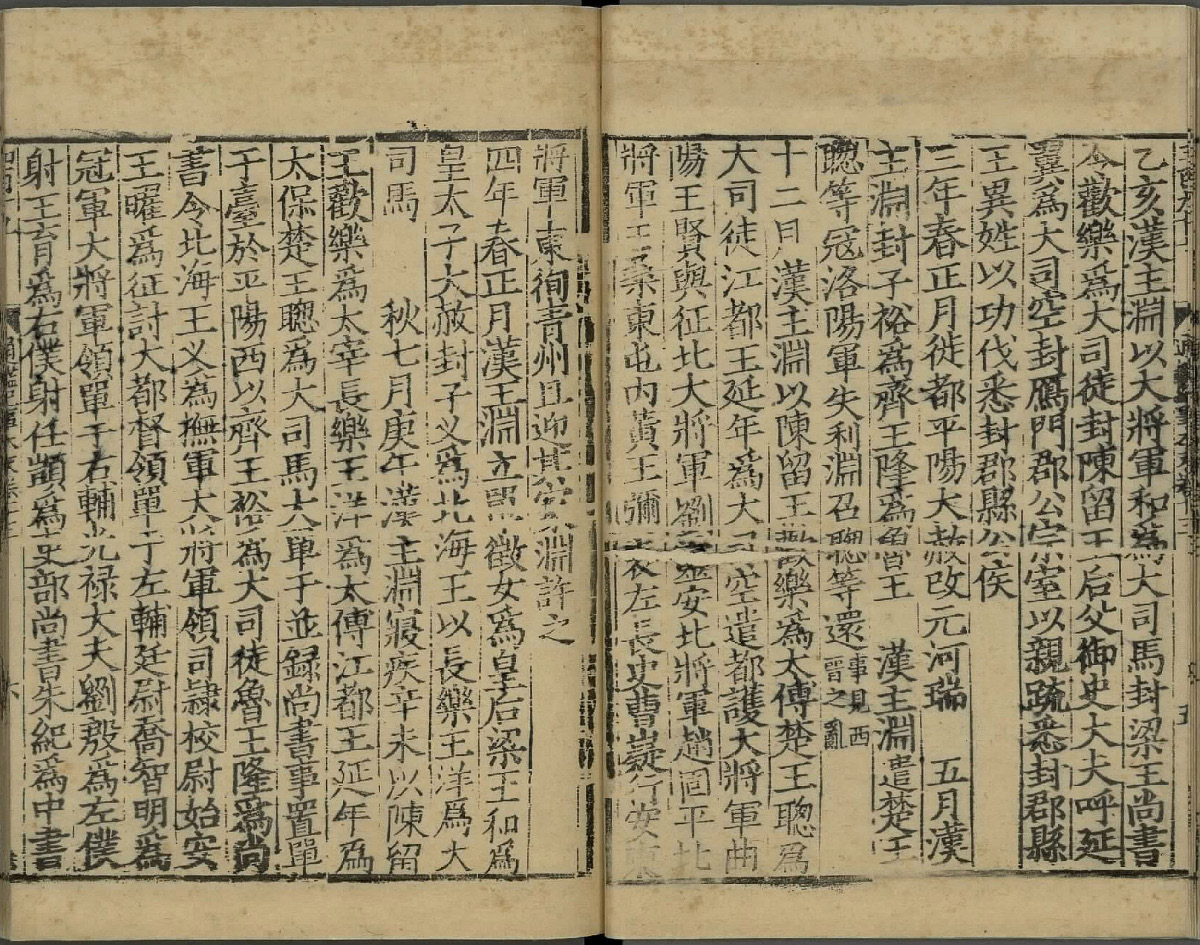 乙亥漢主淵以大將軍和爲大司馬封梁王尚書
令歡樂爲大司徒封陳留王后父御史大夫呼延
翼爲大司空封鴈門郡公宗室以親疏悉封郡縣
王異姓以功伐悉封郡縣公侯
三年春正月徙都平陽大赦改元河瑞　五月漢
主淵封子裕爲齊王隆爲魯王　漢主淵遣楚王
聰等冦洛陽軍失利淵召聰等還事見西晉之亂
十二月漢主淵以陳留王歡樂爲太傅楚王聰爲
大司徒江都王延年爲大司空遣都護大將軍曲
陽王賢與征北大將軍劉靈安北將軍趙固平北
將軍王桑東屯内黃王彌表左長史曹嶷行安東
將軍東徇青州且迎其家淵許之
四年春正月漢王淵立單徵女爲皇后梁王和爲
皇太子大赦封子乂爲北海王以長樂王洋爲大
司馬　秋七月庚午漢主淵寢疾辛未以陳留
王歡樂爲太宰長樂王洋爲太傅江都王延年爲
太保楚王聰爲大司馬大單于並録尚書事置單
于臺於平陽西以齊王裕爲大司徒魯王隆爲尚
書令北海王乂爲撫軍大將軍領司隷校尉始安
王曜爲征討大都督領單于左輔廷尉喬智明爲
冠軍大將軍領單于右輔光禄大夫劉殷爲左僕
射王育爲右僕射任顗爲吏部尚書朱紀爲中書